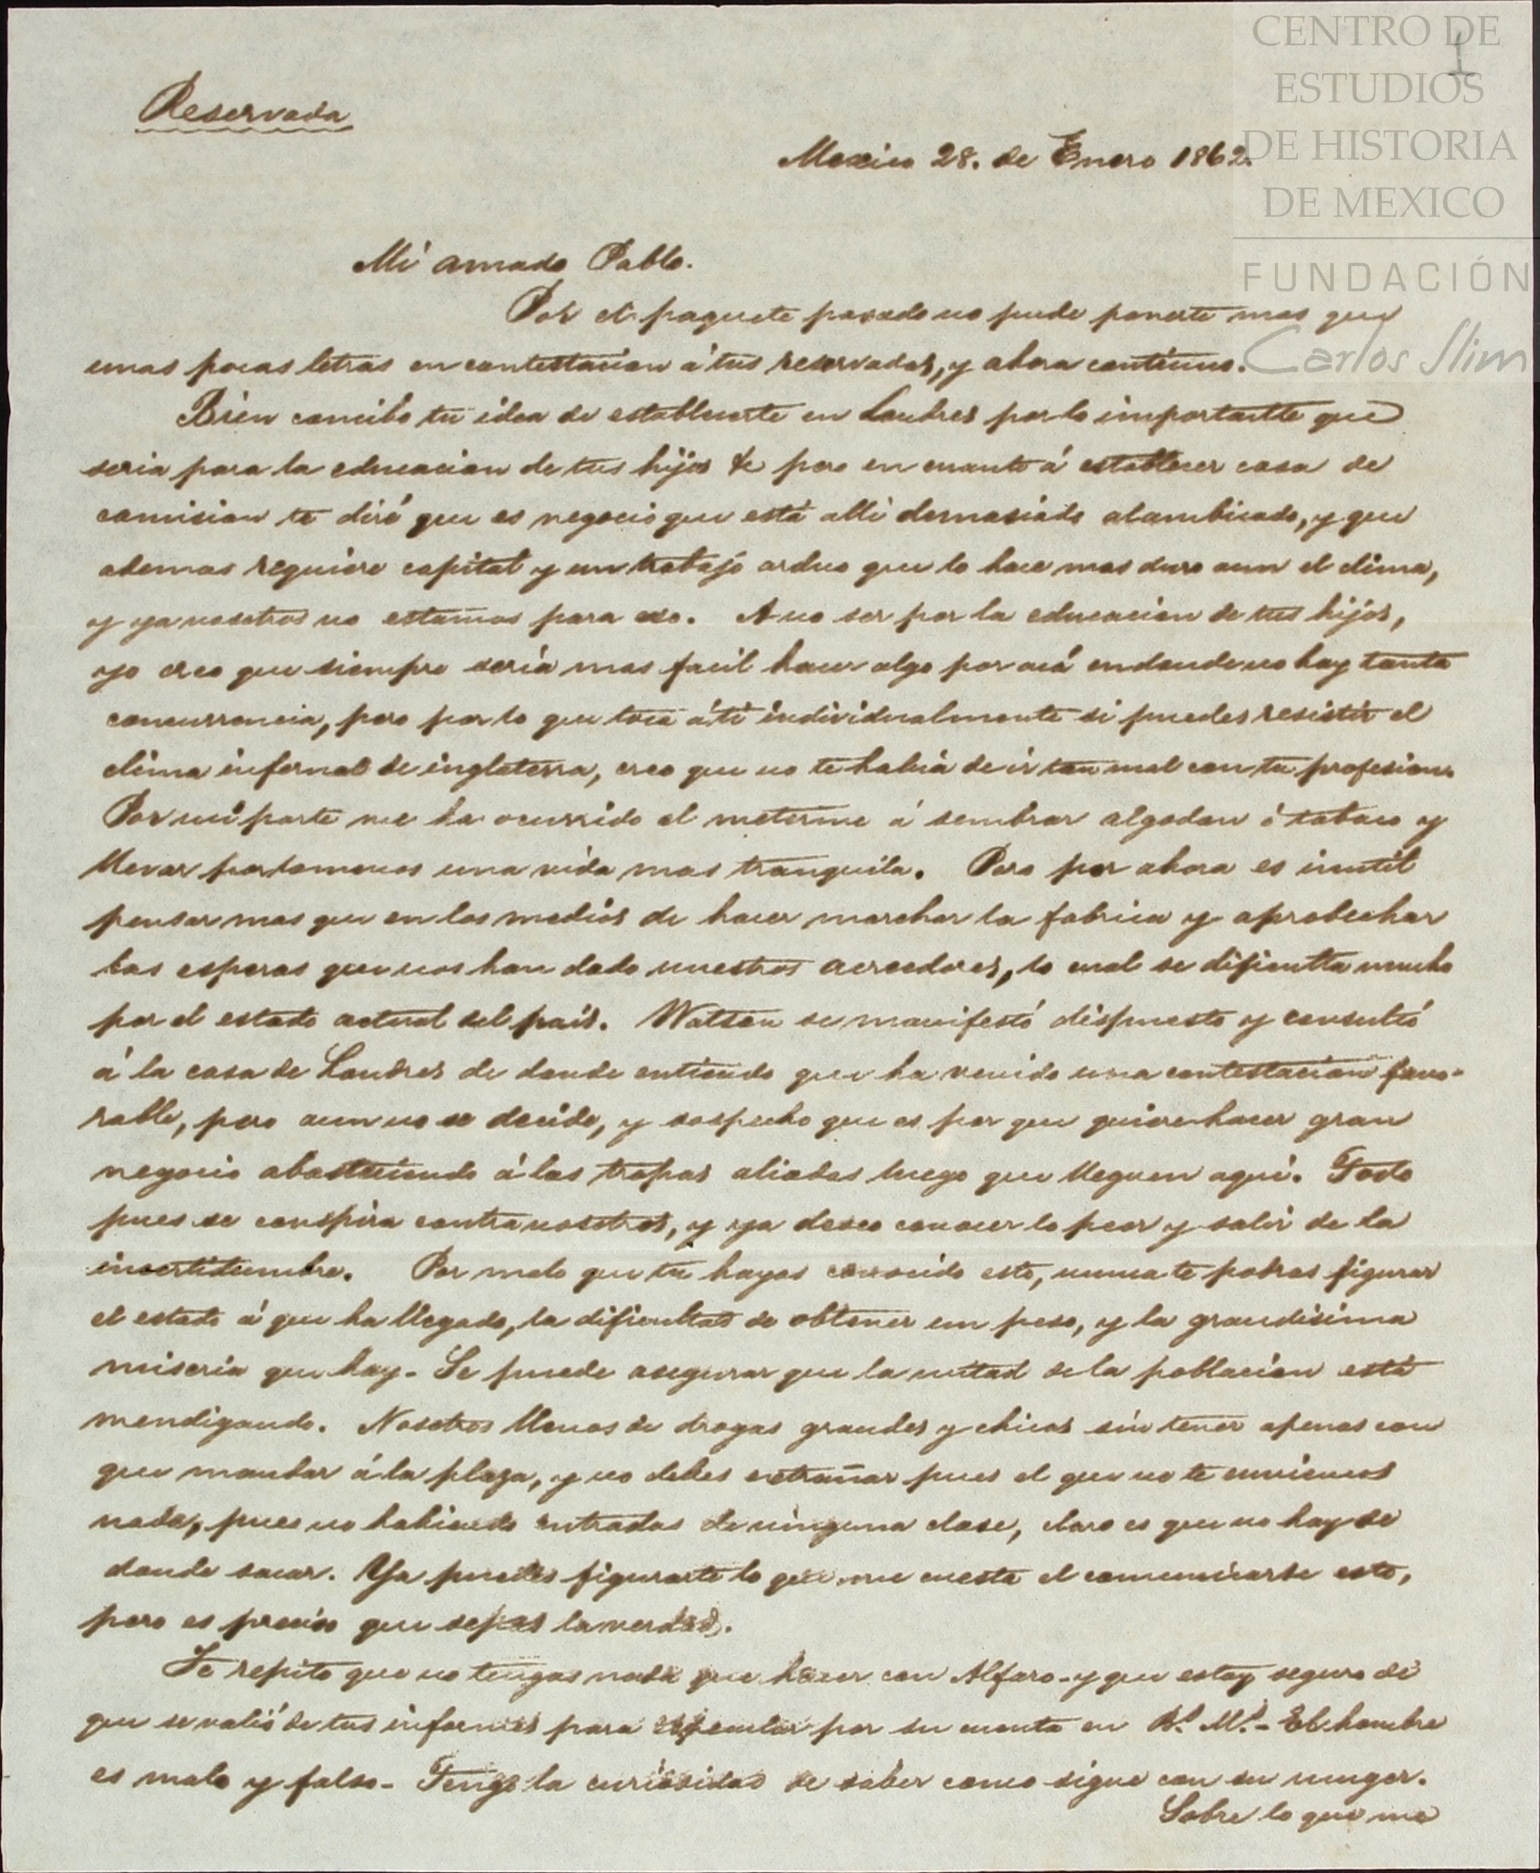 CENTRO DE
ESTUDIOS
DE HISTORIA
DE MEXICO
FUNDACIÓN
Carlos Slim
1
Reservada
Mexico 28. de Enero 1862.
Mi amado Pablo.
Por el paquete pasado no pude ponerte mas que
unas pocas letras en contestacion á tus reservadas, y ahora continuo.
Bien concibo tu idea de establecerte en Londres por lo importante que
seria para la educacion de tus hijos &c pero en cuanto á establecer casa de
comision te diré que es negocio que está alli demasiado alambicado, y que
ademas requiere capital y un trabajo arduo que lo hace mas duro aun el clima,
y ya nosotros no estamos para eso. A no ser por la educacion de tus hijos,
yo creo que siempre sería mas facil hacer algo por acá en donde no hay tanta
concurrencia, pero por lo que toca á tí individualmente si puedes resistir el
clima infernal de inglaterra, creo que no te habia de ir tan mal con tu profesion.
Por mi parte me ha ocurrido el meterme á sembrar algodon ó tabaco y
llevar por lo menos una vida mas tranquila. Pero por ahora es inutil
pensar mas que en los medios de hacer marchar la fabrica y aprobechar
las esperas que nos han dado nuestros acreedores, lo cual se dificulta mucho
por el estado actual del país. Watson se manifestó dispuesto y consultó
á la casa de Londres de donde entiendo que ha venido una contestacion favo-
rable, pero aun no se decide, y sospecho que es por que quiere hacer gran
negocio abasteciendo á las tropas aliadas luego que lleguen aquí. Todo
pues se conspira contra nosotros, y ya deseo conocer lo peor y salir de la
incertidumbre. Por malo que tu hayas conocido esto, nunca te podras figurar
el estado á que ha llegado, la dificultad de obtener un peso, y la grandisima
miseria que hay. Se puede asegurar que la mitad de la poblacion está
mendigando. Nosotros llenos de drogas grandes y chicas sin tener apenas con
que mandar á la plaza, y no debes extrañar pues el que no te enviemos
nada, pues no habiendo entradas de ninguna clase, claro es que no hay de
donde sacar. Ya puedes figurarte lo que me cuesta el comunicarte esto,
pero es preciso que sepas la verdad.
Te repito que no tengas nada que hacer con Alfaro - y que estoy seguro de
que se valió de tus informes para especular por su cuenta en Rl. Ml. - El hombre
es malo y falso - Tengo la curiosidad de saber como sigue con su muger.
Sobre lo que me